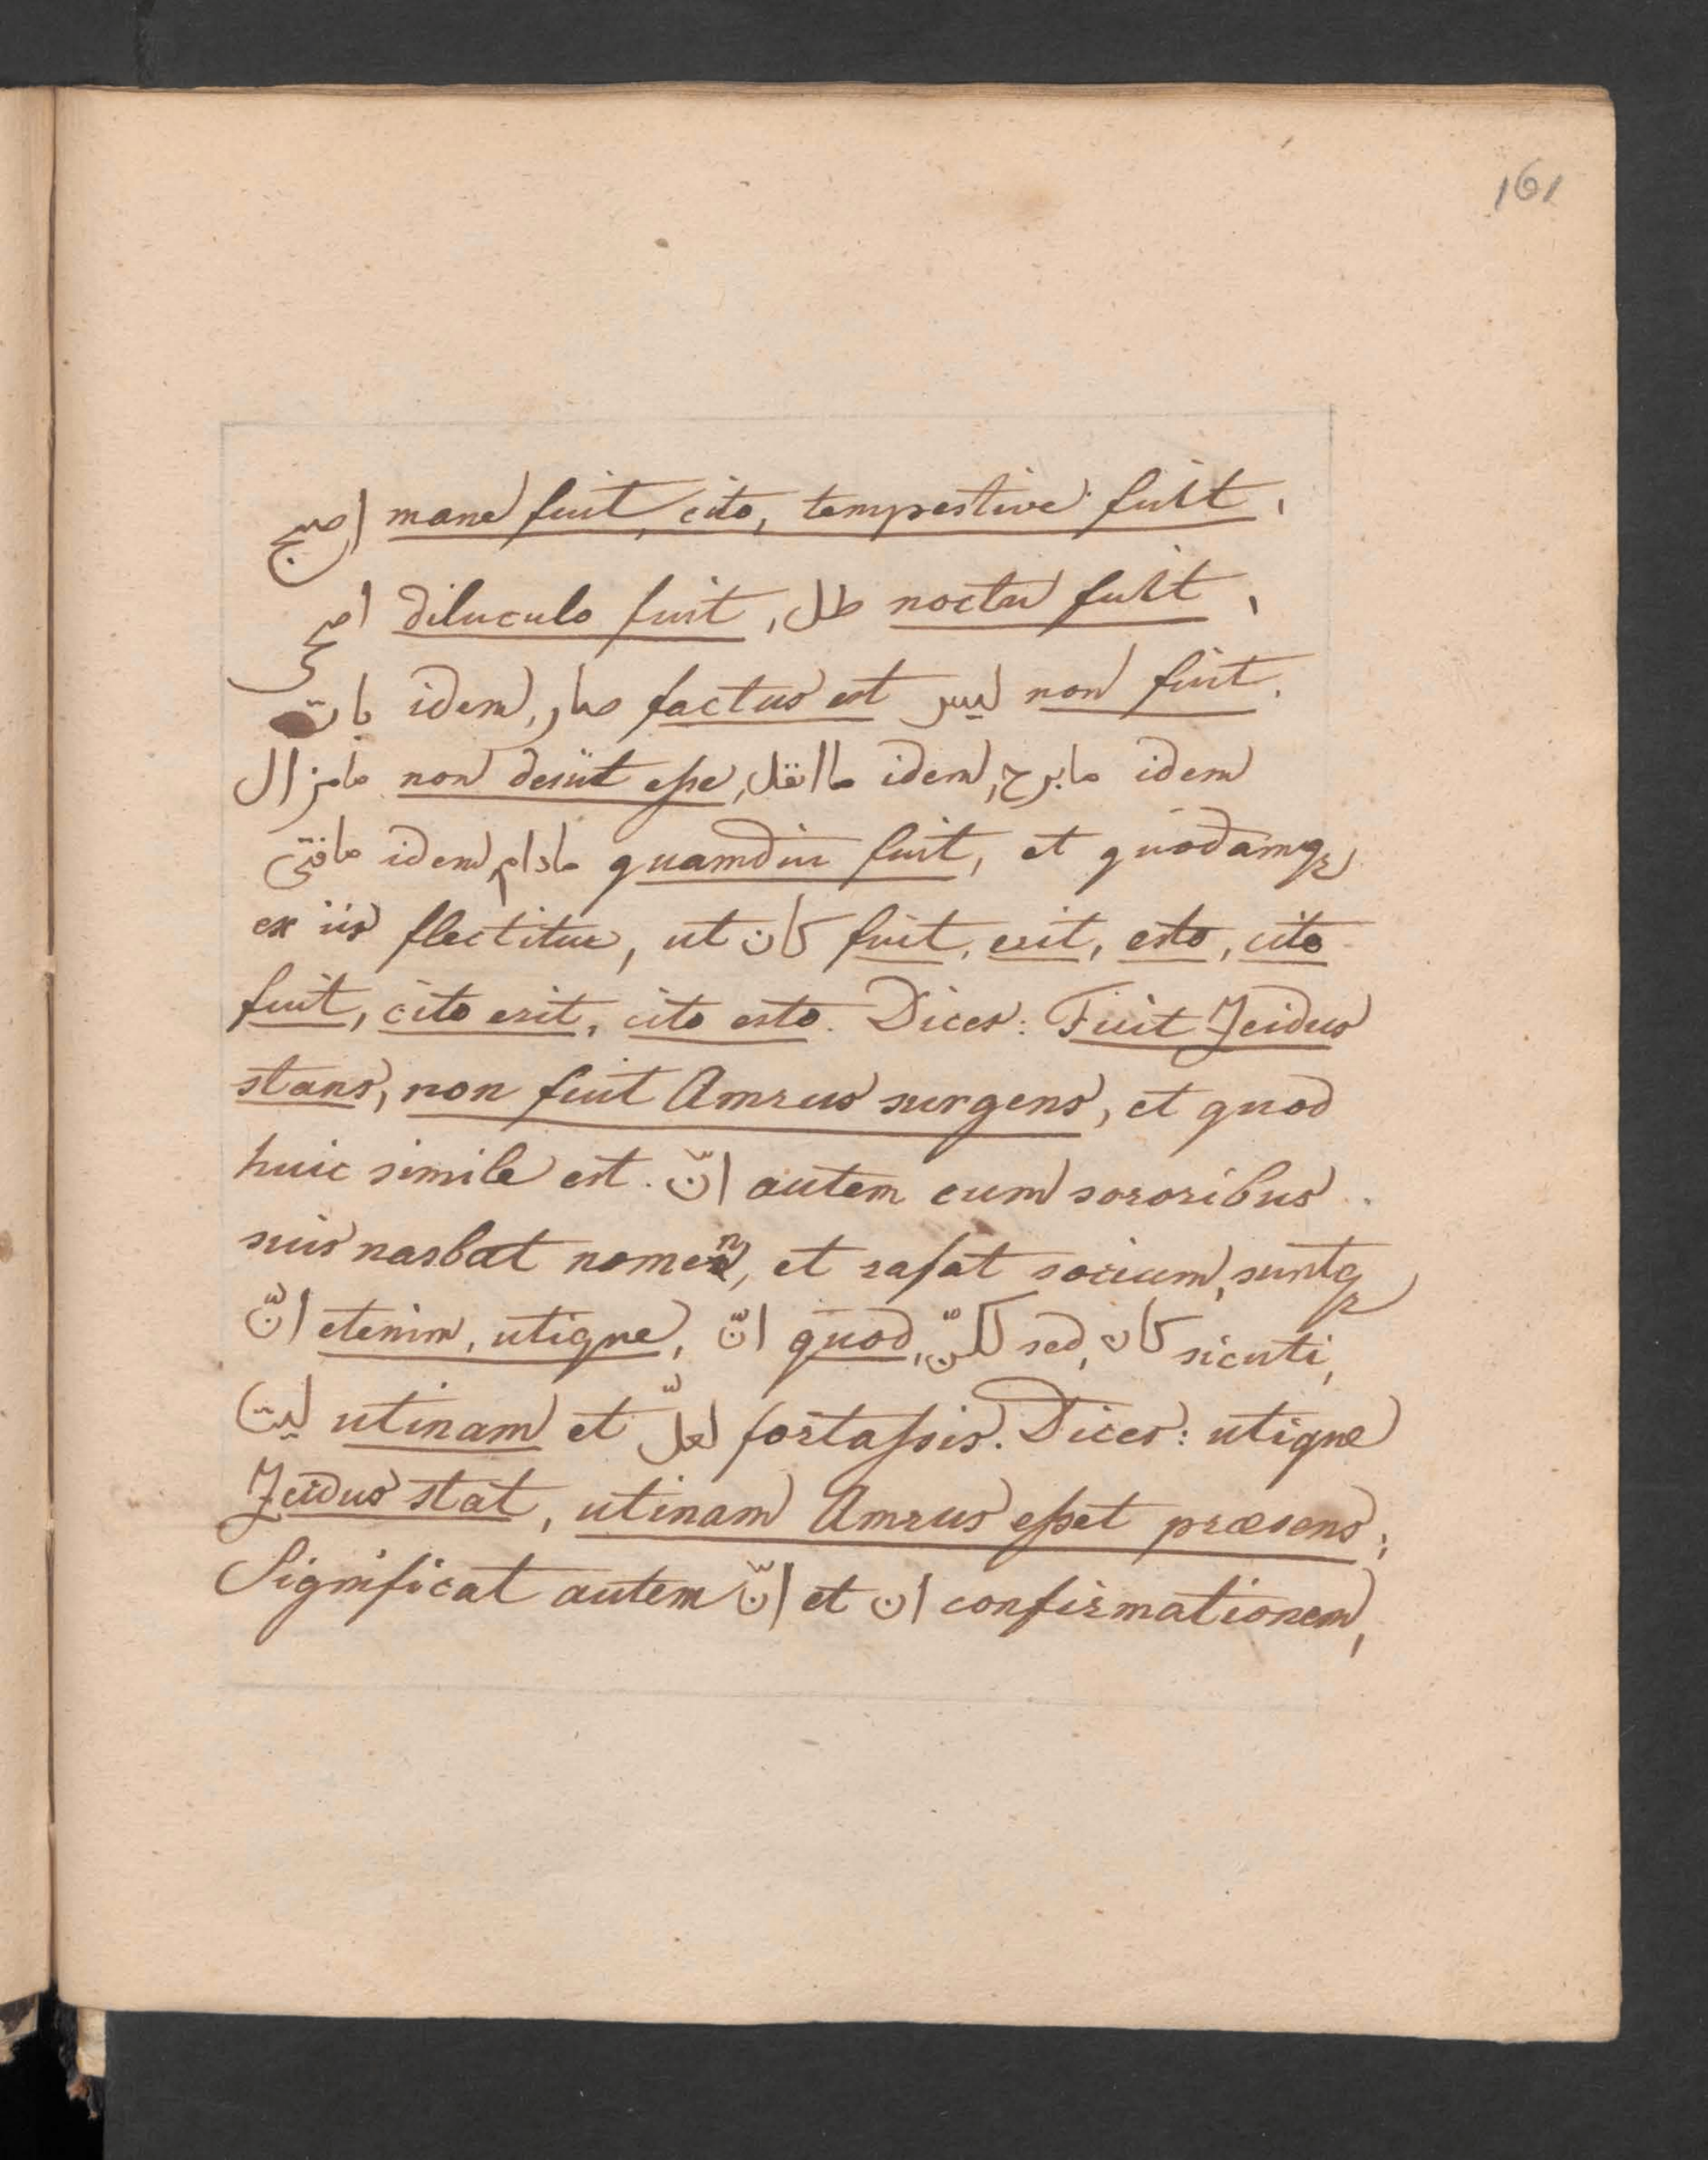 161
اصبح mane fuit, cito, tempestive fuit,
اضحى diluculo fuit, طل noctu fuit,
بات idem, صار factus est ليس non fuit.
مامزال non desiit eſse, ماانقل idem, مابرح idem
مافتى idem, مادام quamdiu fuit, et quodamqꝫ
ex iis flectitur, ut كان fuit, erit, esto, cito
fuit, cito erit, cito esto. Dices: Fuit Zeidus
stans, non fuit Amrus surgens, et quod
huic simile est. انّ autem cum sororibus
suis nasbat nomen, et rafat socium, suntqꝫ
انّ etenim, utique, انّ quod, لكنّ sed, كان sicuti,
ليت utinam et لعلّ fortaſsis. Dices: utique
Zeidus stat, utinam Amrus eſset præsens;
Significat autem انّ et ان confirmationem,